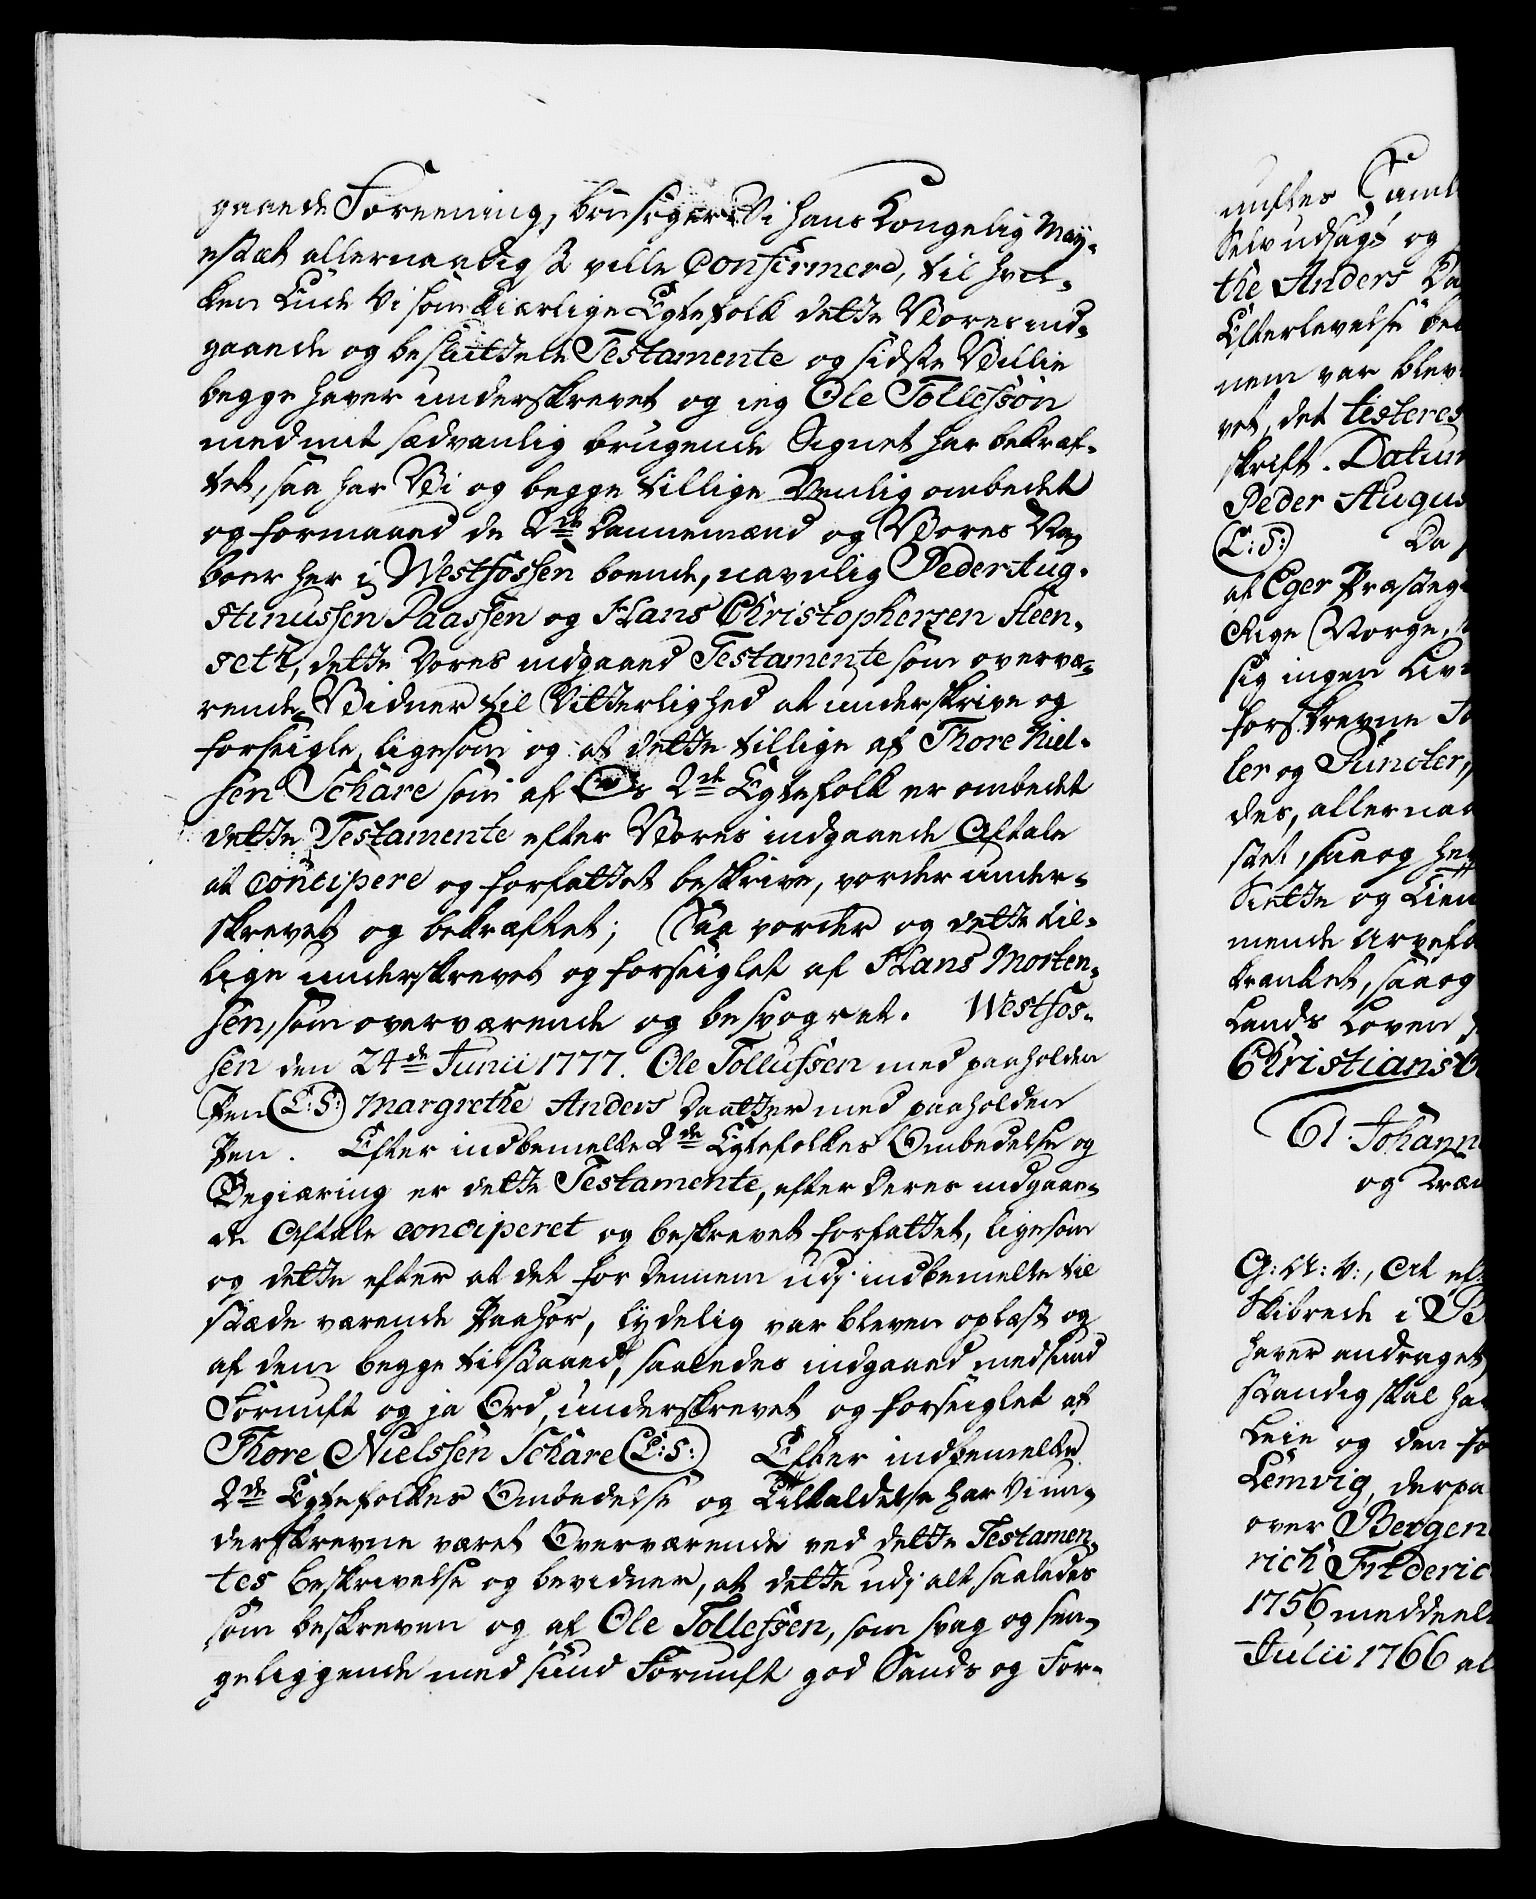 gaaende Foreening, bønsøger Vi Hans Kongelig May-
estæt allernaadigst ville Confirmere, til hvil-
ken Ende Vi som kiærlige Egtefolk dette Vores ind-
gaaende og besluttede Testamente og sidste Villie
begge haver underskrevet og ieg Ole Tollefsøn
med mit sædvanlig brugende Signet har bekræf-
tet, saa har Vi og begge tillige Venlig ombedet
og formaaed de 2de Dannemænd og Vores Na-
boer her i Westfossen boende, navnlig Peder Aug-
stinussen Paassen og Hans Christophersen Steen-
seth, dette Vores indgaaed Testamente som overvæ-
rende Vidner til Vitterlighed at underskrive og
forseigle, ligesom og at dette tillige af Thore Niel-
sen Schare som af Os 2de Egtefolk er ombedet
dette Testamente efter Vores indgaaende Aftale
at concipere og forfattet beskrive, vorder under-
skrevet og bekræftet; Saa vorder og dette til-
lige underskrevet og forseiglet af Hans Morten-
sen, som overværende og besvogret. Westfos-
sen den 24de Junii 1777. Ole Tollufsen med paaholden
Pen (L:S:) Margrethe Anders Daatter med paaholden
Pen. Efter indbemelte 2de Egtefolkes Ombedelse og
Begiæring er dette Testamente, efter deres indgaaen-
de Aftale conciperet og beskrevet forfattet, ligesom
og dette efter at det for dennem udj indbemelte til
stæde værende Paahør, lydelig var bleven oplæst og
af dem begge tilstaaed, saaledes indgaaed med sund
Fornuft og ja Ord, underskrevet og forseiglet af
Thore Nielssen Schare (L:S:) Efter indbemelte
2de Egtefolkes Ombedelse og Tilkaldelse har Vi un-
derskrevne været Overværende ved dette Testamen-
tes beskrivelse og bevidner, at dette udj alt saaledes
som beskreven og af Ole Tollefsen, som svag og sen-
geliggende med sund Fornuft god Sands og For-
nuftes Saml
Selv udsagt og
the Anders Da
Efterlevelse be
nem var blev
vet, det testeres
skrift. Datum
Peder Augus
(L:S:) Da
af Eger Præsteg
Rige Norge,
sig ingen Liv
forskrevne
ler og Puncter,
des, allernaa
stet, saa og he
Sætte og
mende Arvefa
krænket, saa og
Lands Loven
Christiansb
Cl. Johann
og
G: A: V:, At ef
Skibrede i B
haver andraget,
standig skal ha
Leie og den fo
Lemvig, derpaa
over Bergen
rich Frideric
1756 meddeelt
Julii 1766 al